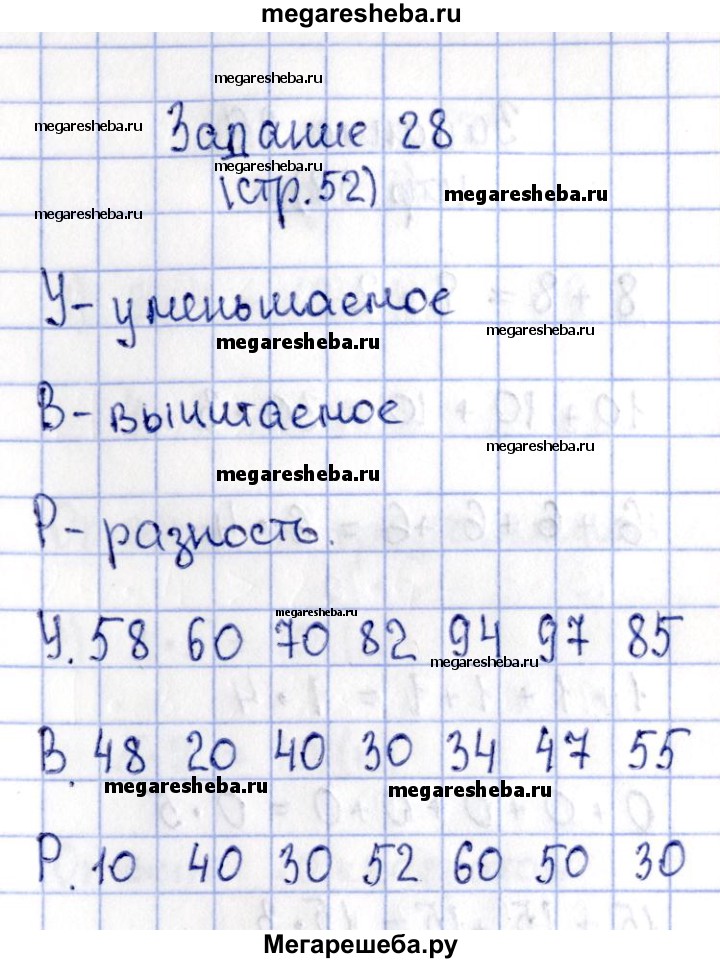 megaresheba.ru
megaresheba.ru
megaresheba.ru
Задание 28
megaresheba.ru
(стр.52)
megaresheba.ru
megaresheba.ru
У- уменьшаемое
megaresheba.ru
megaresheba.ru
В- вычитаемое
megaresheba.ru
megaresheba.ru
Р- разность.
megaresheba.ru
У. 58 60 70 82 94 97 85
megaresheba.ru
В. 48 20 40 30 34 47 55
megaresheba.ru
megaresheba.ru
Р. 10 40 30 52 60 50 30
Мегарешеба.ру